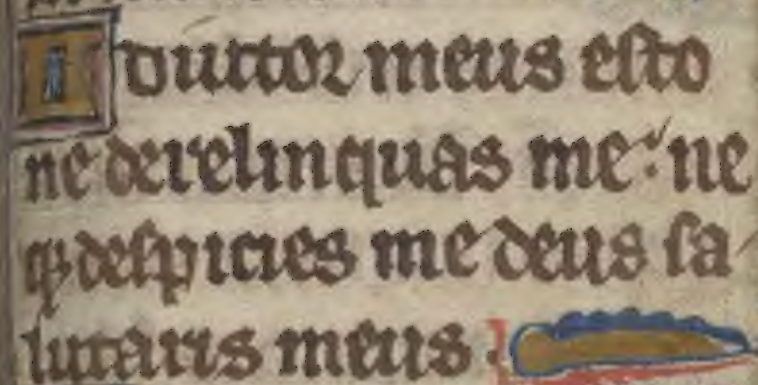 Adiutor meus esto
ne derelinquas me: ne
qꝫ despicies me deus sa
lutaris meus.